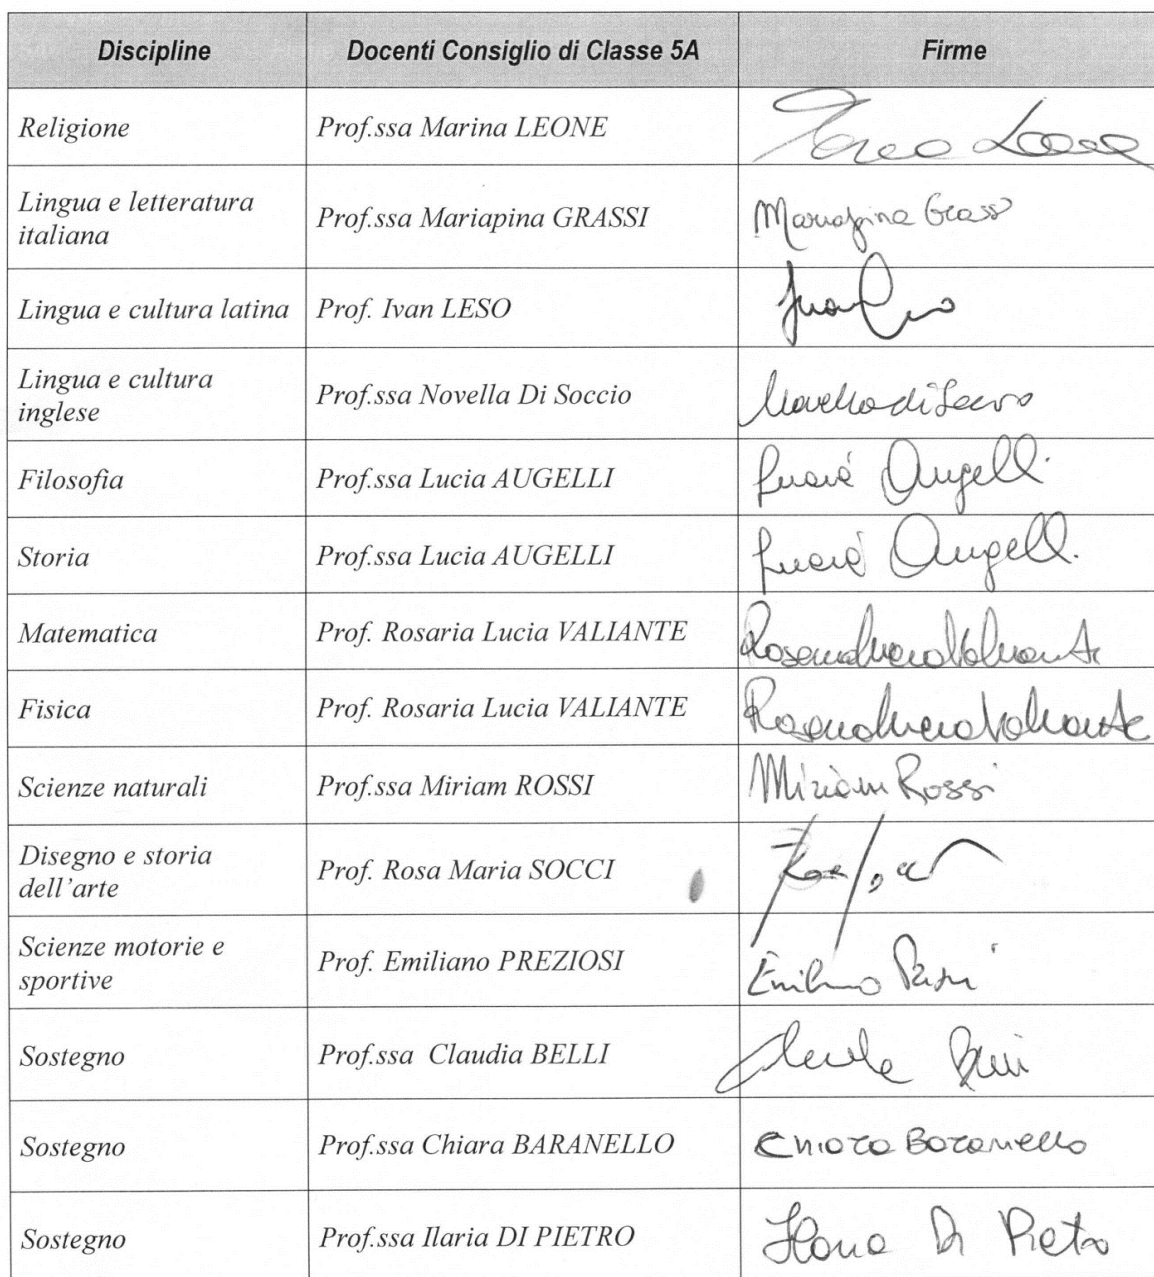 Discipline Docenti Consiglio di Classe 5A Firme
Religione Prof.ssa Marina LEONE
Lingua e letteratura
italiana Prof.ssa Mariapina GRASSI Mariapina Grassi
Lingua e cultura latina Prof. Ivan LESO
Lingua e cultura
inglese Prof.ssa Novella Di Soccio Novella di Soccio
Filosofia Prof.ssa Lucia AUGELLI Lucia Augelli
Storia Prof.ssa Lucia AUGELLI Lucia Augelli
Matematica Prof. Rosaria Lucia VALIANTE Rosaria Lucia Valiante
Fisica Prof. Rosaria Lucia VALIANTE Rosaria Lucia Valiante
Scienze naturali Prof.ssa Miriam ROSSI Miriam Rossi
Disegno e storia
dell'arte Prof. Rosa Maria SOCCI
Scienze motorie e
sportive Prof. Emiliano PREZIOSI
Sostegno Prof.ssa Claudia BELLI
Sostegno Prof.ssa Chiara BARANELLO Chiara Baranello
Sostegno Prof.ssa Ilaria DI PIETRO Ilaria Di Pietro